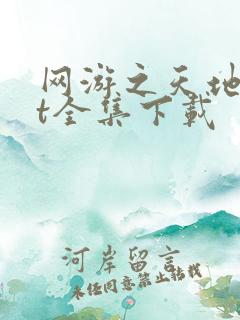 网游之天地
t全集下载
河岸留言
未经同意禁止转载